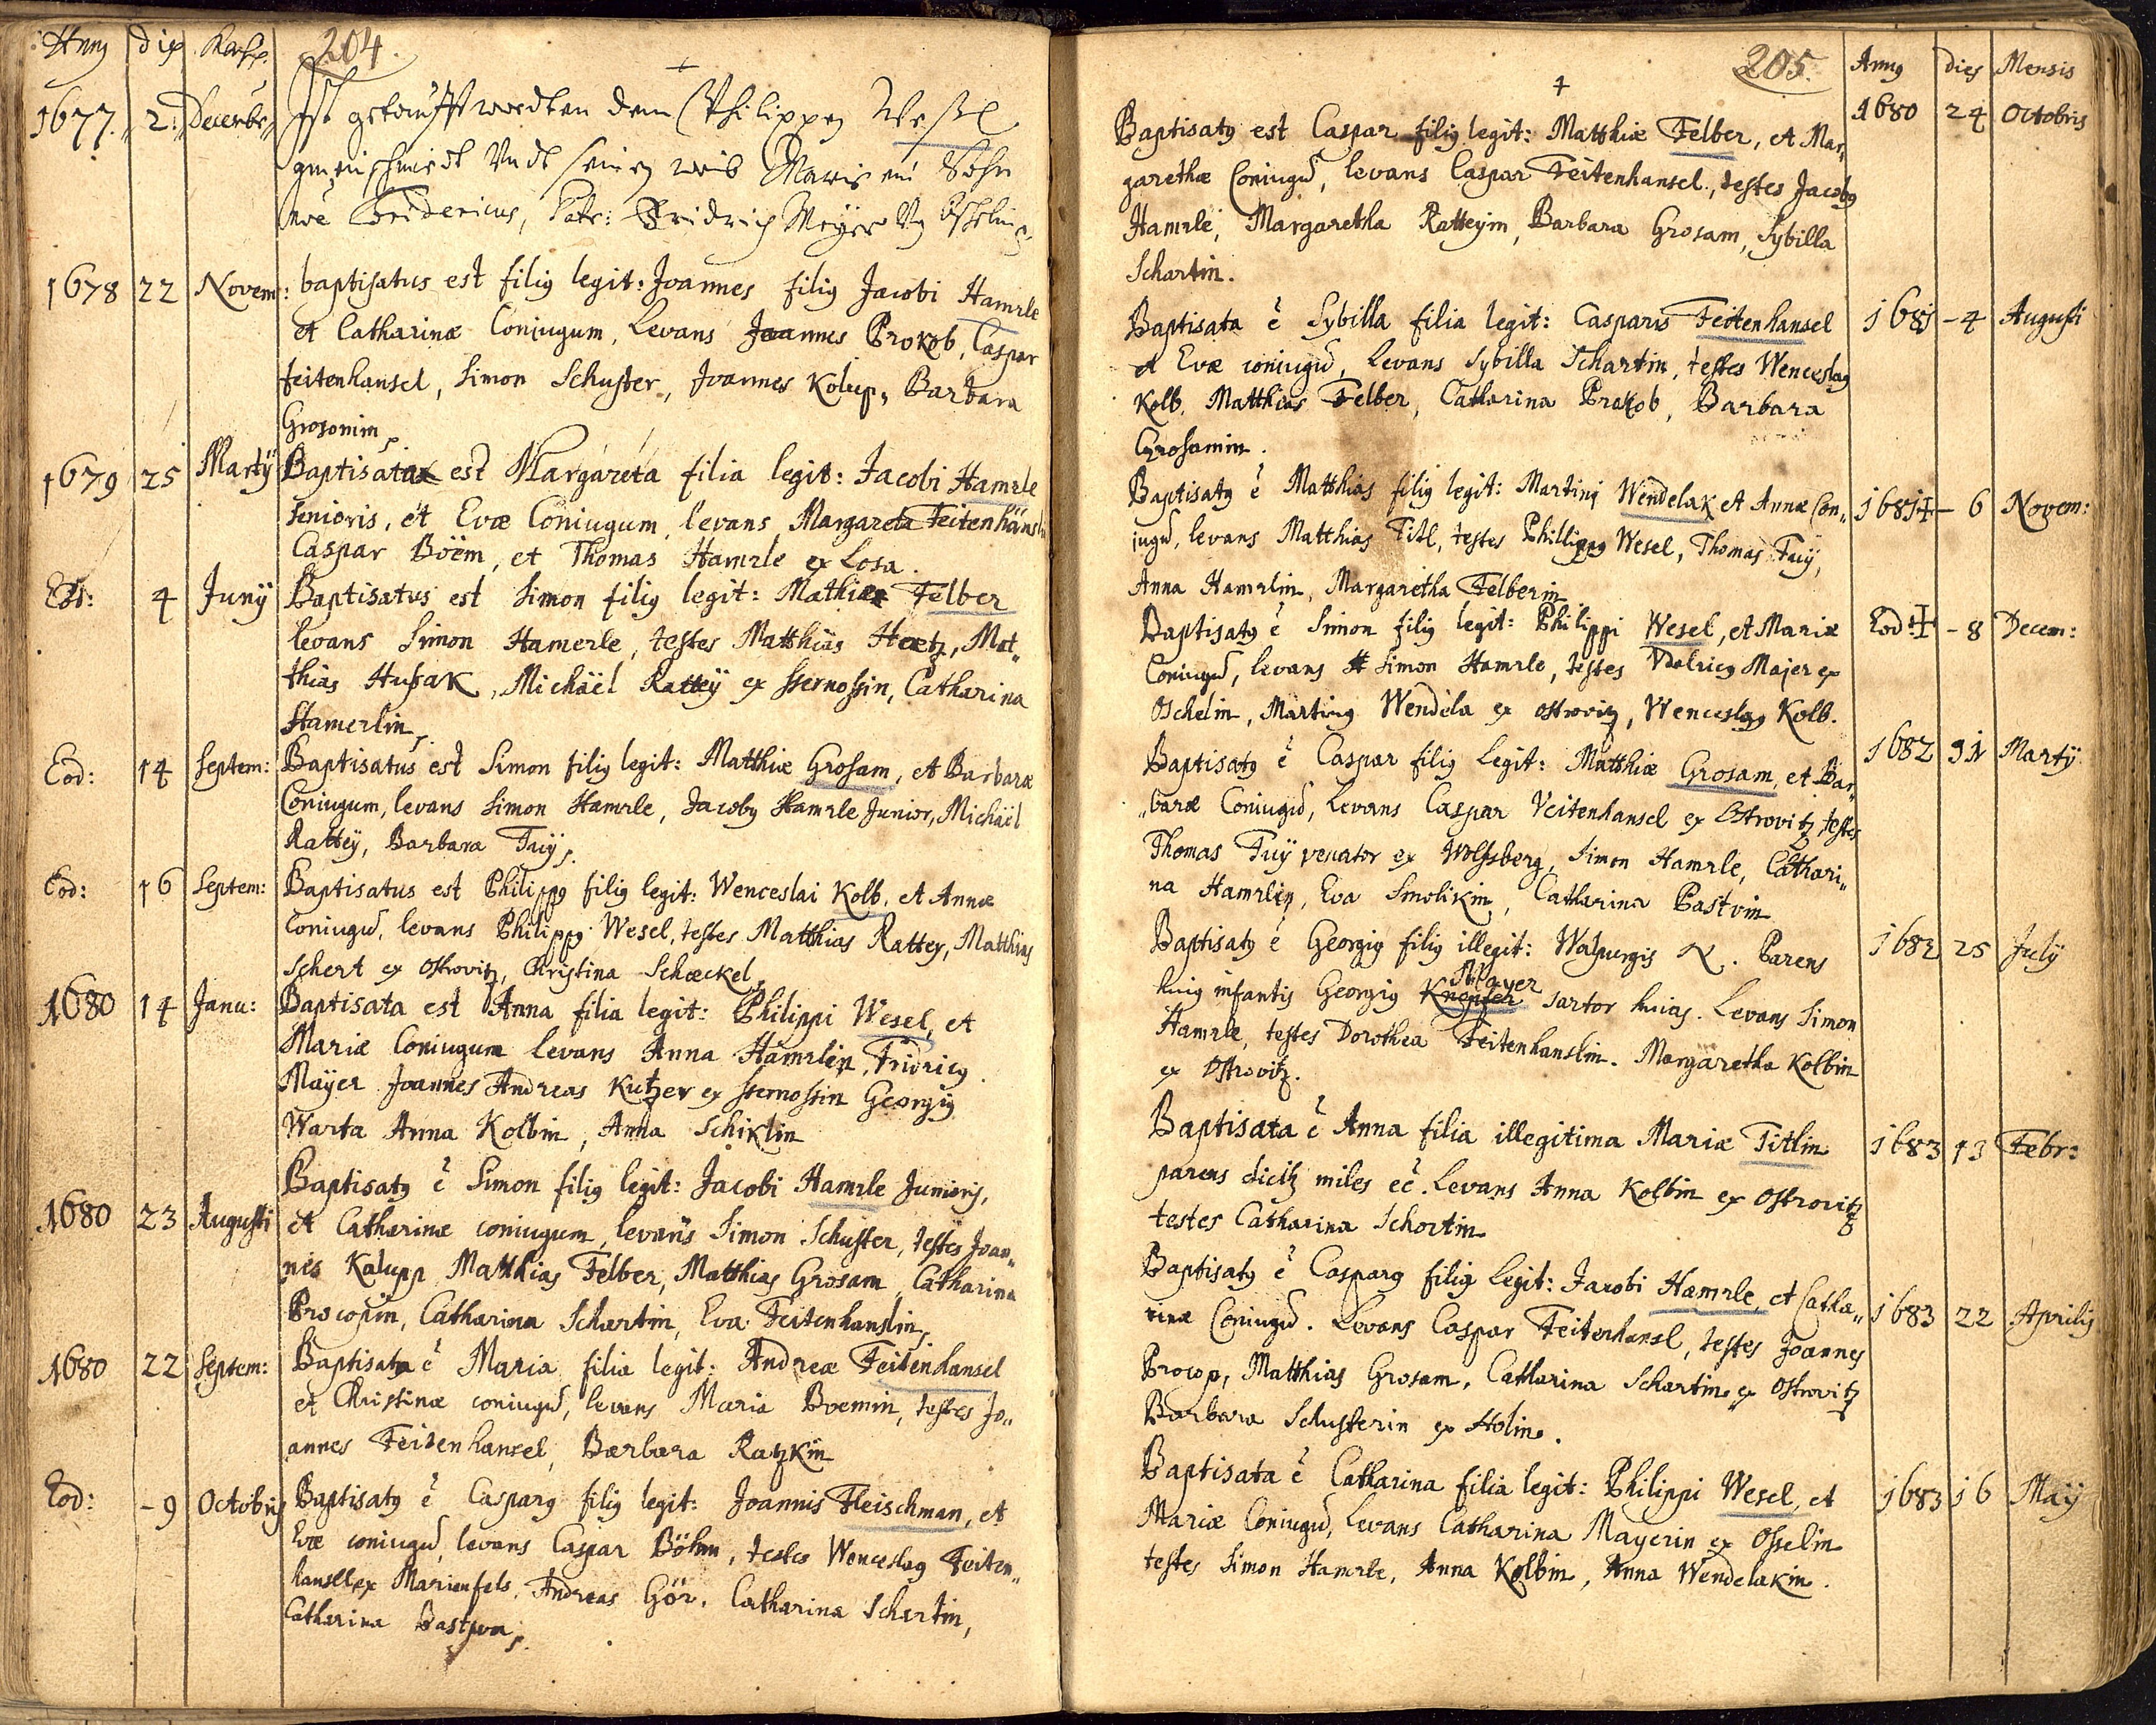 Anno dies Mensis 204
1677. 2. Decembe, Ist getaufft worden dem Philippen Weßl
gmeinschmidt Undt seinem weib Maria ein Sohn
Fridericus, Patr: Fridrich Meÿer
1678 22 Novem: baptisatus est filiꝰ legit: Joannes filiꝰ Jacobi Hamrle
et Catharinæ Coniugum, Levans Joannes Prokob, Caspar
Feitenhansel, Simon Schuster, Joannes Kolup, Barbara
Grosonim
1679 25 Martÿ Baptisata est Margareta filia legit: Jacobi Hamrle
Senioris, et Evæ Coniugum, levans Margareta Feitenhänsl
Caspar Böëm, et Thomas Hamrle ex Losa.
Eod: 4 Junÿ Baptisatus est Simon filiꝰ legit: Mathiæ Felber
levans Simon Hamerle, testes Matthias Haetz, Mat„
thias Husak, Michäël Rattëÿ ex ssernossin, Catharina
Hamerlin.
Eod: 14 Septem: Baptisatus est Simon filiꝰ legit: Matthiæ Grosam, et Barbaræ
Coniugum, levans Simon Hamrle, Jacobꝰ Hamrle Junior, Michäël
Rattëÿ, Barbara Fuÿ.
Eod: 16 Septem: Baptisatus est Philippꝰ filiꝰ legit: Wenceslai Kolb, et Annæ
Coniugū, levans Philippꝰ Wesel, testes Matthias Rattey, Matthias
Schert ex Ostrovitz, Christina Schæckel
1680 14 Janu: Baptisata est Anna filia legit: Philippi Wesel, et
Mariæ Coniugum Levans Anna Hamrlin, Fridricꝰ
Maÿer Joannes Andreas Kutzer ex ssernossin Georgiꝰ
Warta Anna Kolbin, Anna Schiklin
1680 23 Augusti Baptisatꝰ ē Simon filiꝰ legit: Jacobi Hamrle Junioris,
et Catharinæ coniugum, levans Simon Schuster, testes Joan„
nes Kalupp Matthias Felber, Matthias Grosam, Catharina
Procopin, Catharina Schartin, Eva Feitenhanslin
1680 22 Septem: Baptisata ē Maria filia legit: Andreæ Feitenhansel
et Christinæ coniugū, levans Maria Boemin, testes Jo„
annes Feitenhansel, Barbara Ratzkin
Eod: -9 Octobris Baptisatꝰ ē Casparꝰ filiꝰ legit: Joannis Fleischman, et
Evæ coniugū, levans Caspar Böhm, testes Wenceslaꝰ Feiten„
hansll ex Marienfels, Andreas Gör, Catharina Schartin,
Catharina Bastpva
205. Anno dies Mensis
Baptisatꝰ est Caspar filiꝰ legit: Matthiæ Felber, et Mar„ 1680 24 Octobris
garethæ Coniugū, levans Caspar Feitenhansel, testes Jacobꝰ
Hamrle, Margaretha Ratteyin, Barbara Grosam, Sybilla
Schartin.
Baptisata ē Sybilla filia legit: Casparis Feitenhansel 1681 -4 Augusti
et Evæ coniugū, Levans Sybilla Schartin, testes Wenceslaꝰ
Kolb, Matthias Felber, Catharina Prakob, Barbara
Grosamin.
Baptisatꝰ ē Matthias filiꝰ legit: Martini Wendelak et Annæ Con„ 1681 - 6 Novem:
iugū, levans Matthias Titl, testes Phillippꝰ Wesel, Thomas Fuÿ,
Anna Hamrlin, Margaretha Felberin
Baptisatꝰ ē Simon filiꝰ legit: Philippi Wesel, et Mariæ Eod: - 8 Decem:
Coniugū, levans Simon Hamrle, testes Vdalricꝰ Majer ex
Oschelin, Martinꝰ Wendela ex ostrovitz, Wenceslaꝰ Kolb.
Baptisatꝰ ē Caspar filiꝰ Legit: Matthiæ Grosam, et Bar„ 1682 31 Martÿ
„baræ Coniugū, Levans Caspar Veitenhansel ex Ostrovitz, testes
Thomas Fuÿ venator ex Wolfsberg, Simon Hamrle, Cathari„
na Hamrlin, Eva Smolikin, Catharina Pastvin
Baptisatꝰ ē Georgiꝰ filiꝰ illegit: Walpurgis N. Parens 1682 25 Julÿ
huiꝰ infantis Georgiꝰ Knepfer Mayer sartor huias. Levans Simon
Hamrle, testes Dorothea Feitenhanslin. Margaretha Kolbin
ex Ostrovitz.
Baptisata ē Anna filia illegitima Mariæ Titlin 1683 13 Febr:
parens miles Levans Anna Kolbin ex Ostrovitz
testes Catharina Schortin
Baptisatꝰ ē Casparꝰ filiꝰ Legit: Jacobi Hamrle, et Catha„ 1683 22 Aprilis
rinæ Coniugū. Levans Caspar Feitenhansl, testes Joannes
Procop, Matthias Grosam, Catharina Schartin ex Ostrovitz
Barbara Schusterin ex Holin.
Baptisata ē Catharina filia legit: Philippi Wesel, et 1683 16 Maÿ
Mariæ Coniugū, Levans Catharina Mayerin ex Osselin
testes Simon Hamrle, Anna Kolbin, Anna Wendelakin.